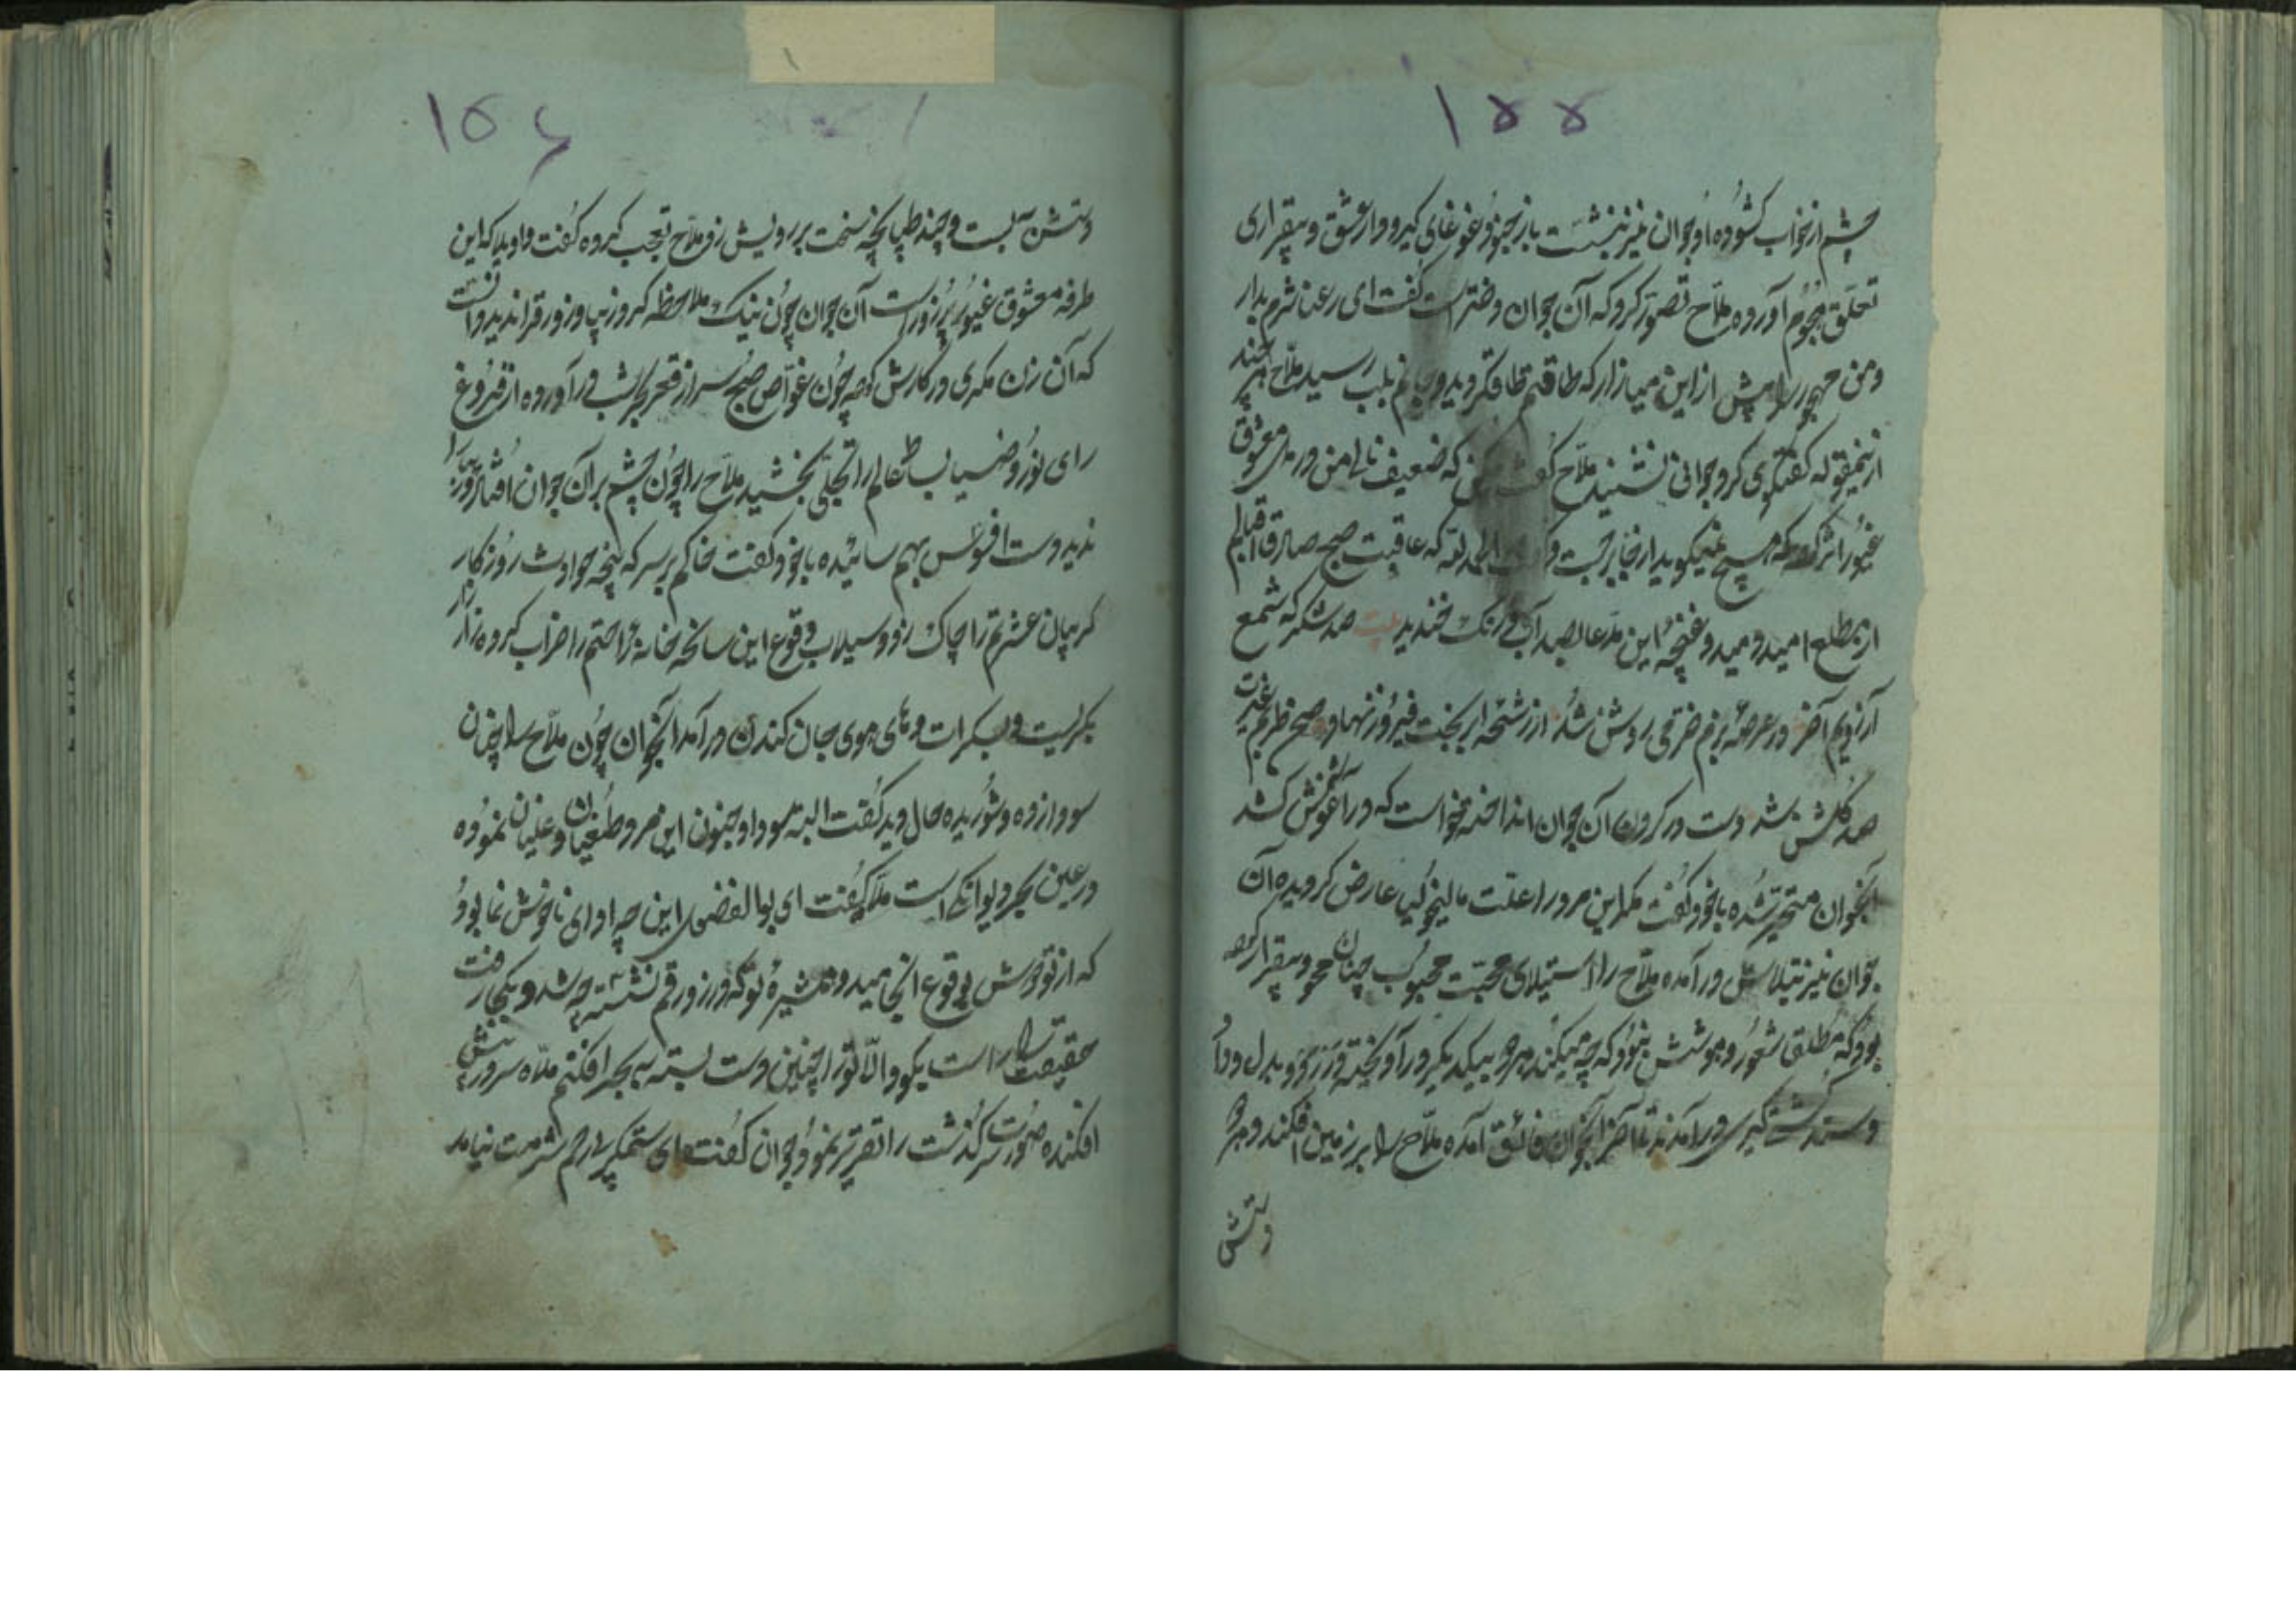 ۱۵۵
چشم از خواب کشوده او جوان نیز بنشست باز جنون غوغای کرد و از عشق و بیقراری
تعلق هجوم آورده ملاح تصور کرد که آن جوان دختر است گفت ای رعنا شرم بدار
و من مهجور را بیش از این میازار که طاقتم طاق گردید و جانم بلب رسید ملاح هر چند
از ینمقوله گفتگوی کرد جوابی نشنید ملاح گفت که ضعیف نالی من در دل معشوق
غیور اثر کرد که هیچ نمیگوید از جا برجست و الحمد لله که عاقبت صبح صادق اقبالم
از مطلع امید دمید و غنچه این مدعا بصد آب و رنک خندید بیت صد شکر که شمع
آرزویم آخر در عرصه بزم خرمی روشن شد از رشحه ابر بخت فیروز نهاد صبح طربم غیرت
صد گلشن شد دست در گردن آن جوان انداخته خواست که در آغوشش کشد
آنجوان متحیر شده باخود گفت مگر این مرد را علت مالیخولیا عارض گردیده آن
جوان نیز بتلاش در آمده ملاح را استیلای محبت محبوب چنان محو و بیقرار کرده
بود که مطلق شعور و هوشش نبود که چه میکند هر دو بیکدیگر در آویخته و
دست کشتی گیری در آمدند تا آخر آنجوان فائق آمده ملاح را بر زمین افکند و هر دو
دستش
۱۵۶
دستش به بست و چند طپانچه سخت بر رویش زد ملاح تعجب کرده گفت واویلا که این
طرفه معشوق غیور پرزور است آن جوان چون نیک ملاحظه کرد زیبا و زورق را ندید دانست
که آن زن مکری در کارش کرده چون غواص صبح سر از قعر بحر شب بر آورده از فروغ
رای نور و ضیا بساط عالم را تجلی بخشید ملاح را چون چشم بر آن جوان افتاد زورق را
ندید دست افسوس بهم سائیده باخود گفت خاکم بر سر که پنجه حوادث روزکار
کریبان عشرتم را چاک زد و سیلاب وقوع این سانحه خانه راحتم را خراب کرده زار زار
بگریست و بسکرات و های هوی جان کندن در آمد آنجوان چون ملاح را چنان
سودا زده و شوریده حال دید گفت البته سودا و جنون این مرد طغیان و غلیان نموده
در عین بحر دیوانگی است ملاح گفت ای بوالفضول این چه ادای ناخوش نما بود
که از تو بوش وقوع انجامید و همشیره تو که در زورقم نشسته چه شد و بکجا رفت
حقیقت را راست بگو و الا تو را چنین دست بسته به بحر افکنم ملاح سر در پیش
افکنده صورت سرگذشت را تقریر نمود جوان گفت ای ستمگر بی رحم شرمت نیامد